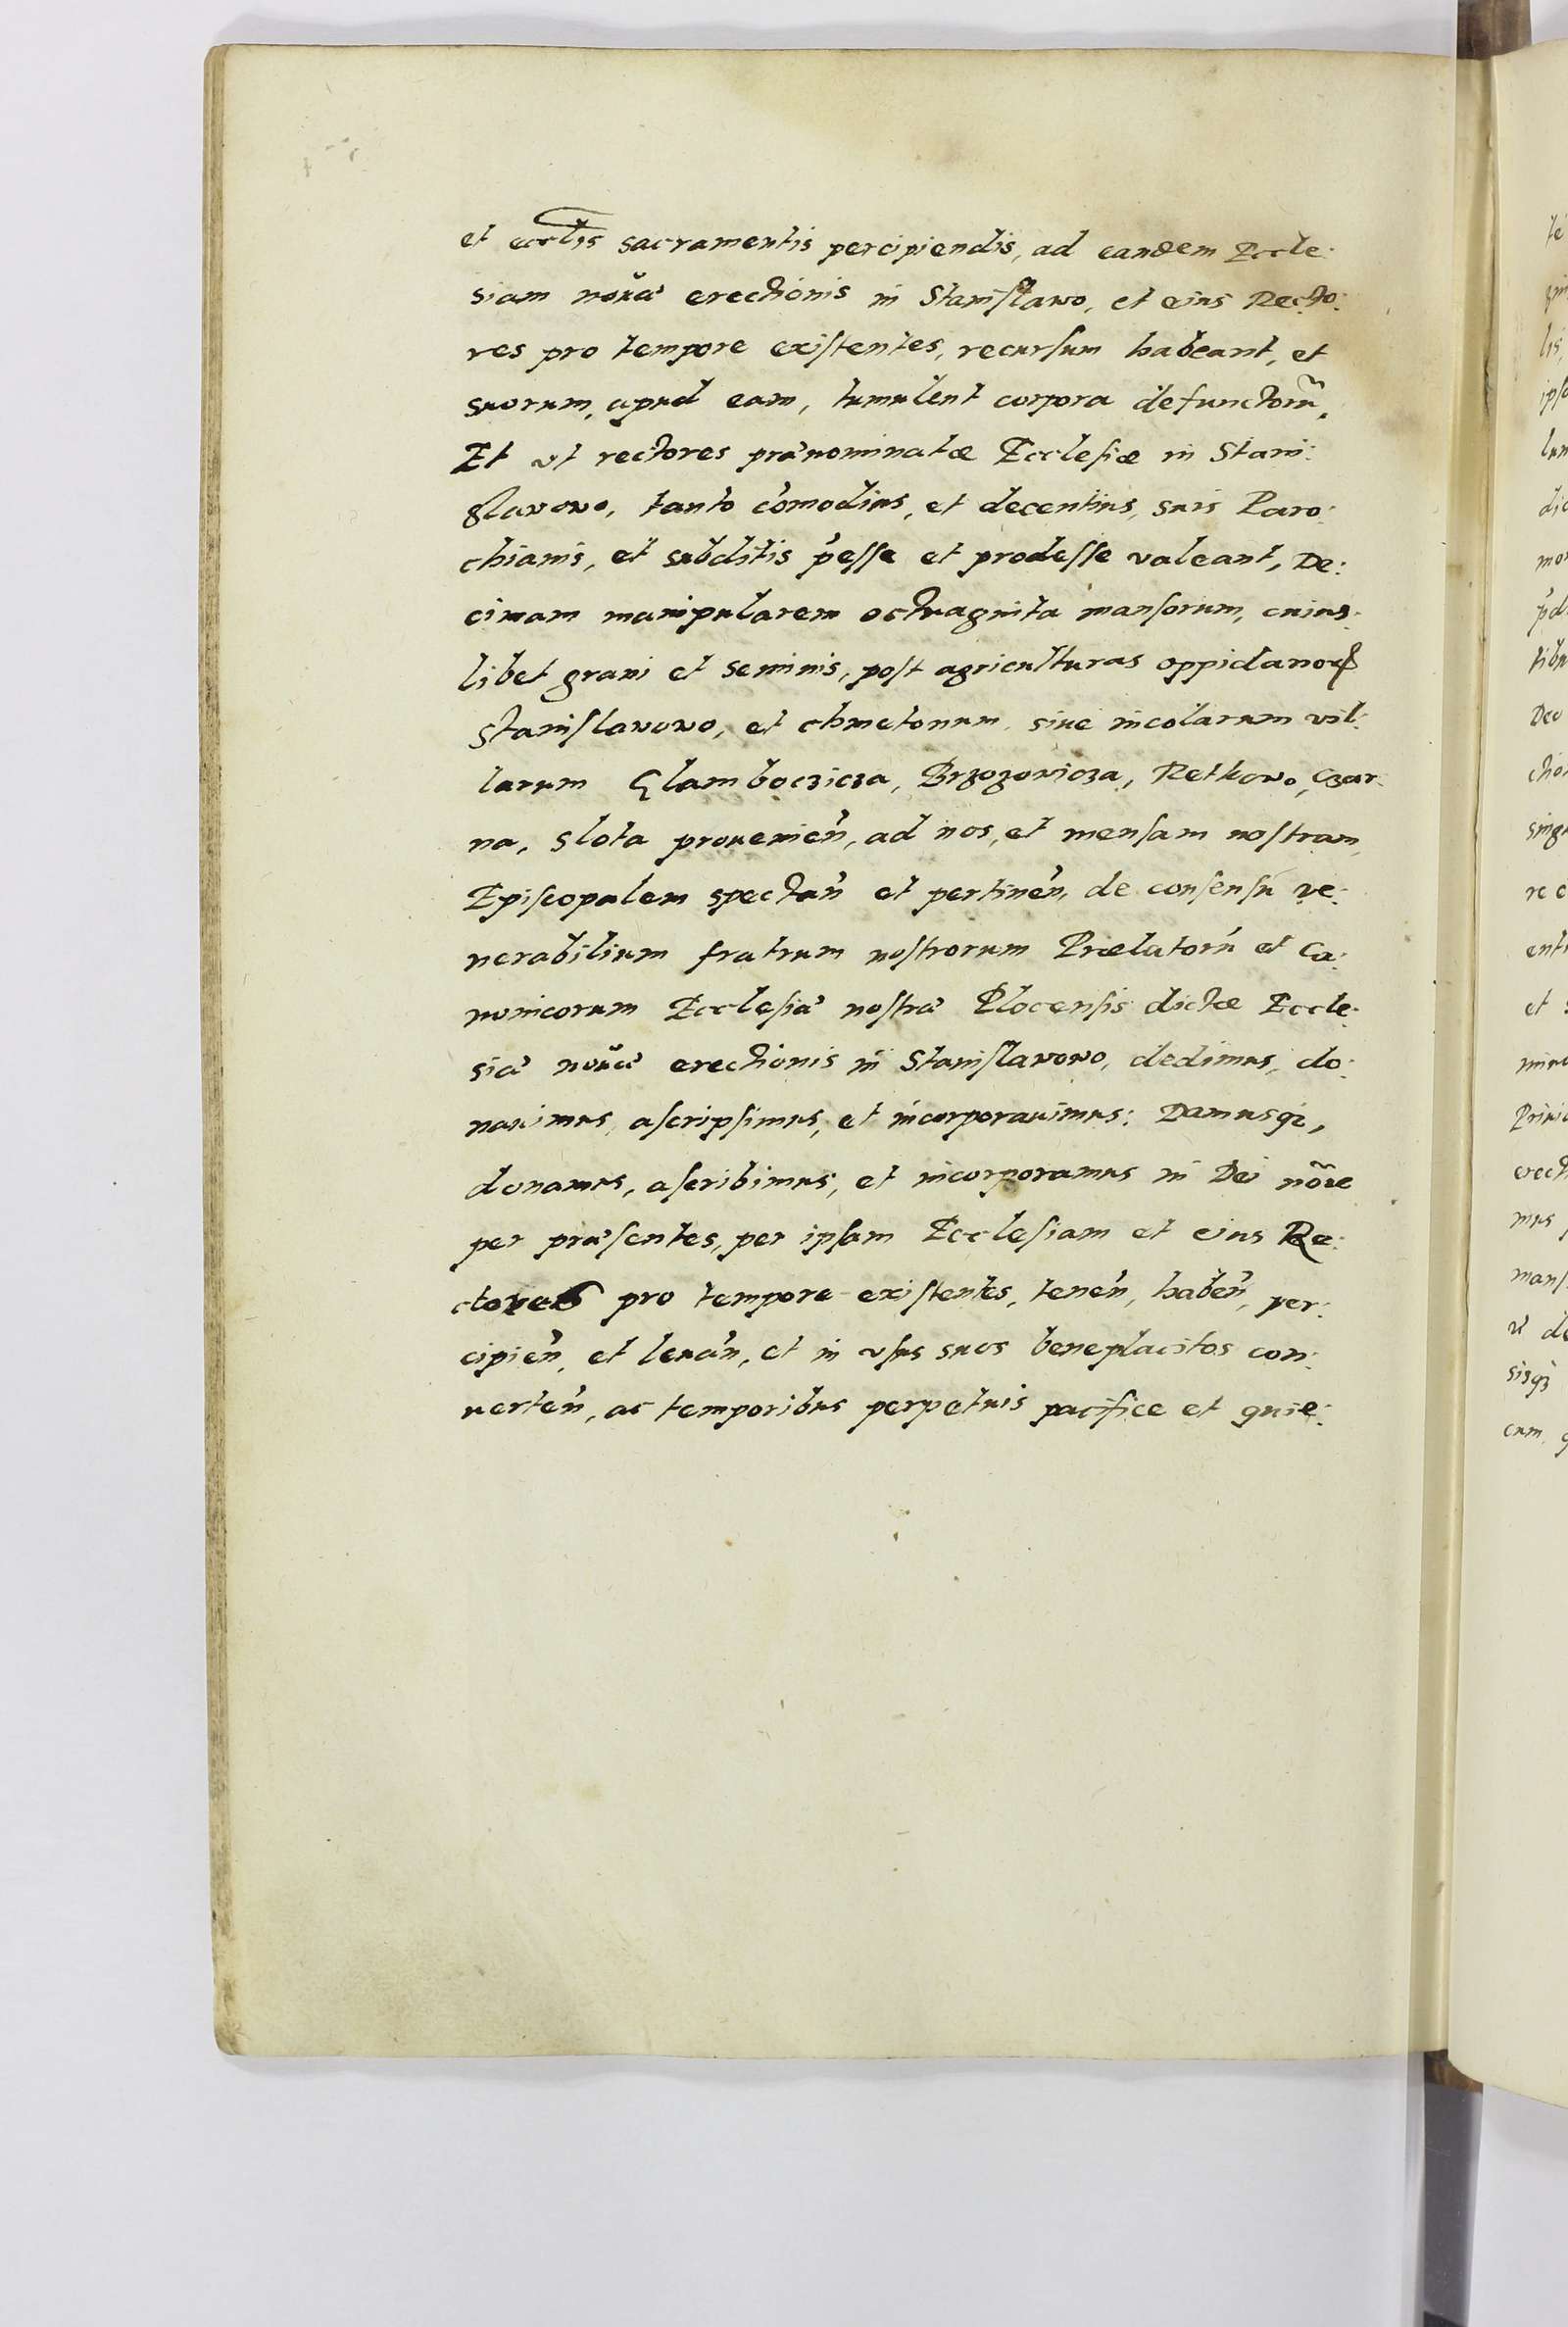 et ecctis sacramentis percipiendis, ad eandem Eccle:
siam nouæ erectionis in Stanislawo, et eius Recto:
res pro tempore existentes, recursum habeant, et
suorum, apud eam, tumulent corpora defunctorũ,
Et vt rectores prænominatæ Ecclesiæ in Stani:
slawowo, tanto cōmodius, et decentius, suis Paro:
chianis, et subditis p̄esse et prodesse valeant, De:
cimam manipularem octuaginta mansorum, cuius:
libet grani et seminis, post agriculturas oppidanoꝝ
Stanislawowo, et chmetonum siue incolarum vil:
larum Glamboczicza, Brzozowicza, Retkowo, Czar:
na, Slota prouenien̄, ad nos, et mensam nostram
Episcopalem spectan̄ et pertinen̄, de consensu ve:
nerabilium fratrum nostrorum Prælatorū et Ca:
nonicorum Ecclesiæ nostræ Plocensis dictæ Eccle:
siæ nouæ erectionis in Stanislawowo, dedimus, do:
nauimus, ascripsimus, et incorporauimus: Damusq;,
donamus, ascribimus, et incorporamus in Dei nõie
per præsentes, per ipsam Ecclesiam et eius Re:
ctores pro tempore existentes, tenen̄, haben̄, per:
cipien̄, et leuan̄, et in vsus suos beneplacitos con:
uerten̄, ac temporibus perpetuis pacifice et quie: